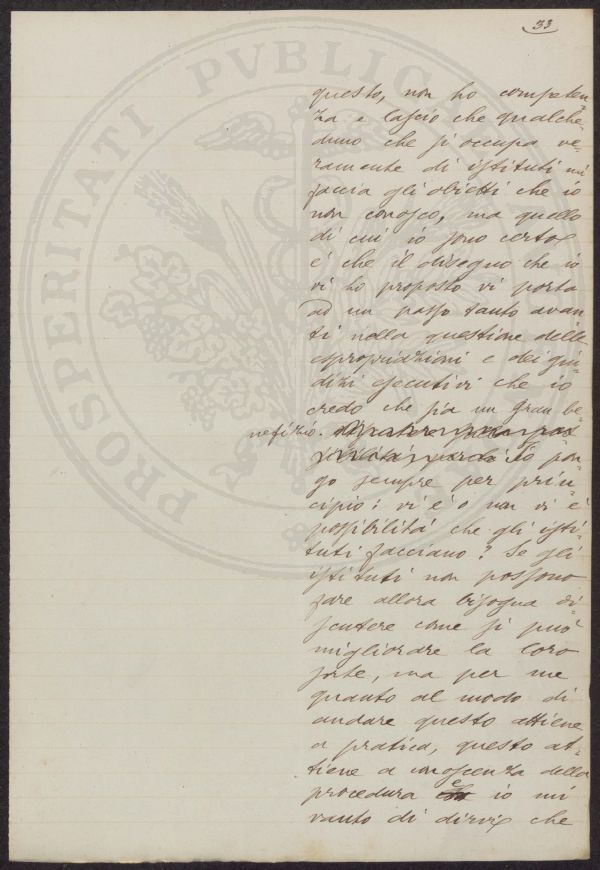 33
PROSPERITATI PVBLICAE
questo, non ho competen-
za e lascio che qualche-
duno che si occupa ve-
ramente di istituti mi
faccia gli obietti che io
non conosco, ma quello
di cui io sono certo
é che il disegno che io
vi ho proposto vi porta
ad un passo tanto avan-
ti nella questione delle
espropriazioni e dei giu-
dizi esecutivi che io
credo che sia un gran be-
nefizio. Io pon-
go sempre per prin-
cipio: vi é o non vi é
possibilitá che gli isti-
tuti facciano? Se gli
istituti non possono
fare allora bisogna di-
scutere come si puó
migliorare la loro
sorte, ma per me
quanto al modo di
andare questo attiene
a pratica, questo at-
tiene a conoscenza della
procedura e io mi
vanto di dirvi che